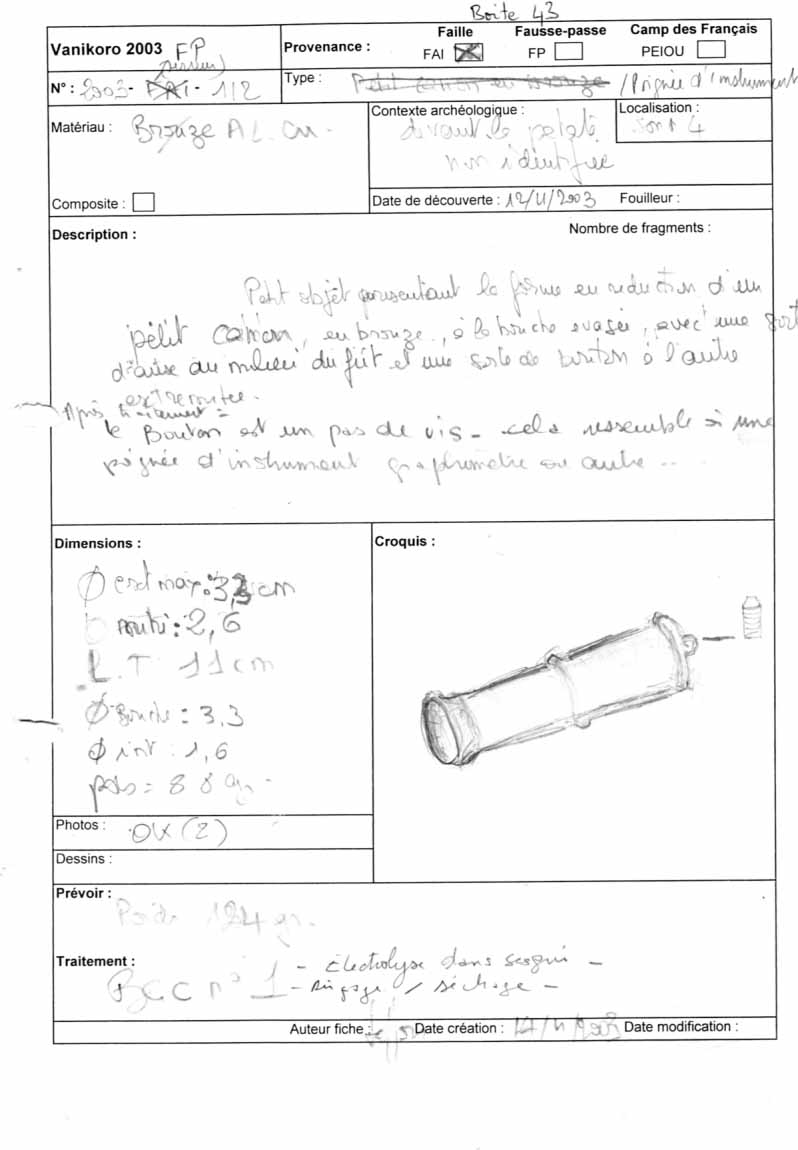 Boite 43
Vanikoro 2003 FP
Provenance :
Faille
FAI
Fausse-passe
FP
Camp des Français
PEIOU
N° : 2003- FAI - 112
Type : Petit canon en bronze / Poignée d'instrument
Matériau : Bronze AL. Cu -
Composite :
Contexte archéologique :
devant le
non identifiée
Localisation :
4
Date de découverte : 12/11/2003 Fouilleur :
Description :
Nombre de fragments :
Petit objet présentant la forme en reduction d'un
pétit canon, en bronze, à la bouche evasée, avec une sort
d'anse au milieu du fût et une sorte de bouton à l'autre
extremitee.
Après traitement =
le Bouton est un pas de vis - cela ressemble à une
poignée d'instrument graphometre ou autre ...
Dimensions :
Ø ext max: 3,3 cm
: 2,6
L.T : 11 cm
Ø Bouche : 3,3
Ø int : 1,6
pds = 88 gr -
Croquis :
Photos : OK (2)
Dessins :
Prévoir :
Poids 124 gr.
Traitement :
BCC n° 1 - électrolyse dans sesqui -
- Rinçage / séchage -
Auteur fiche :
Date création : 14/11/2003
Date modification :